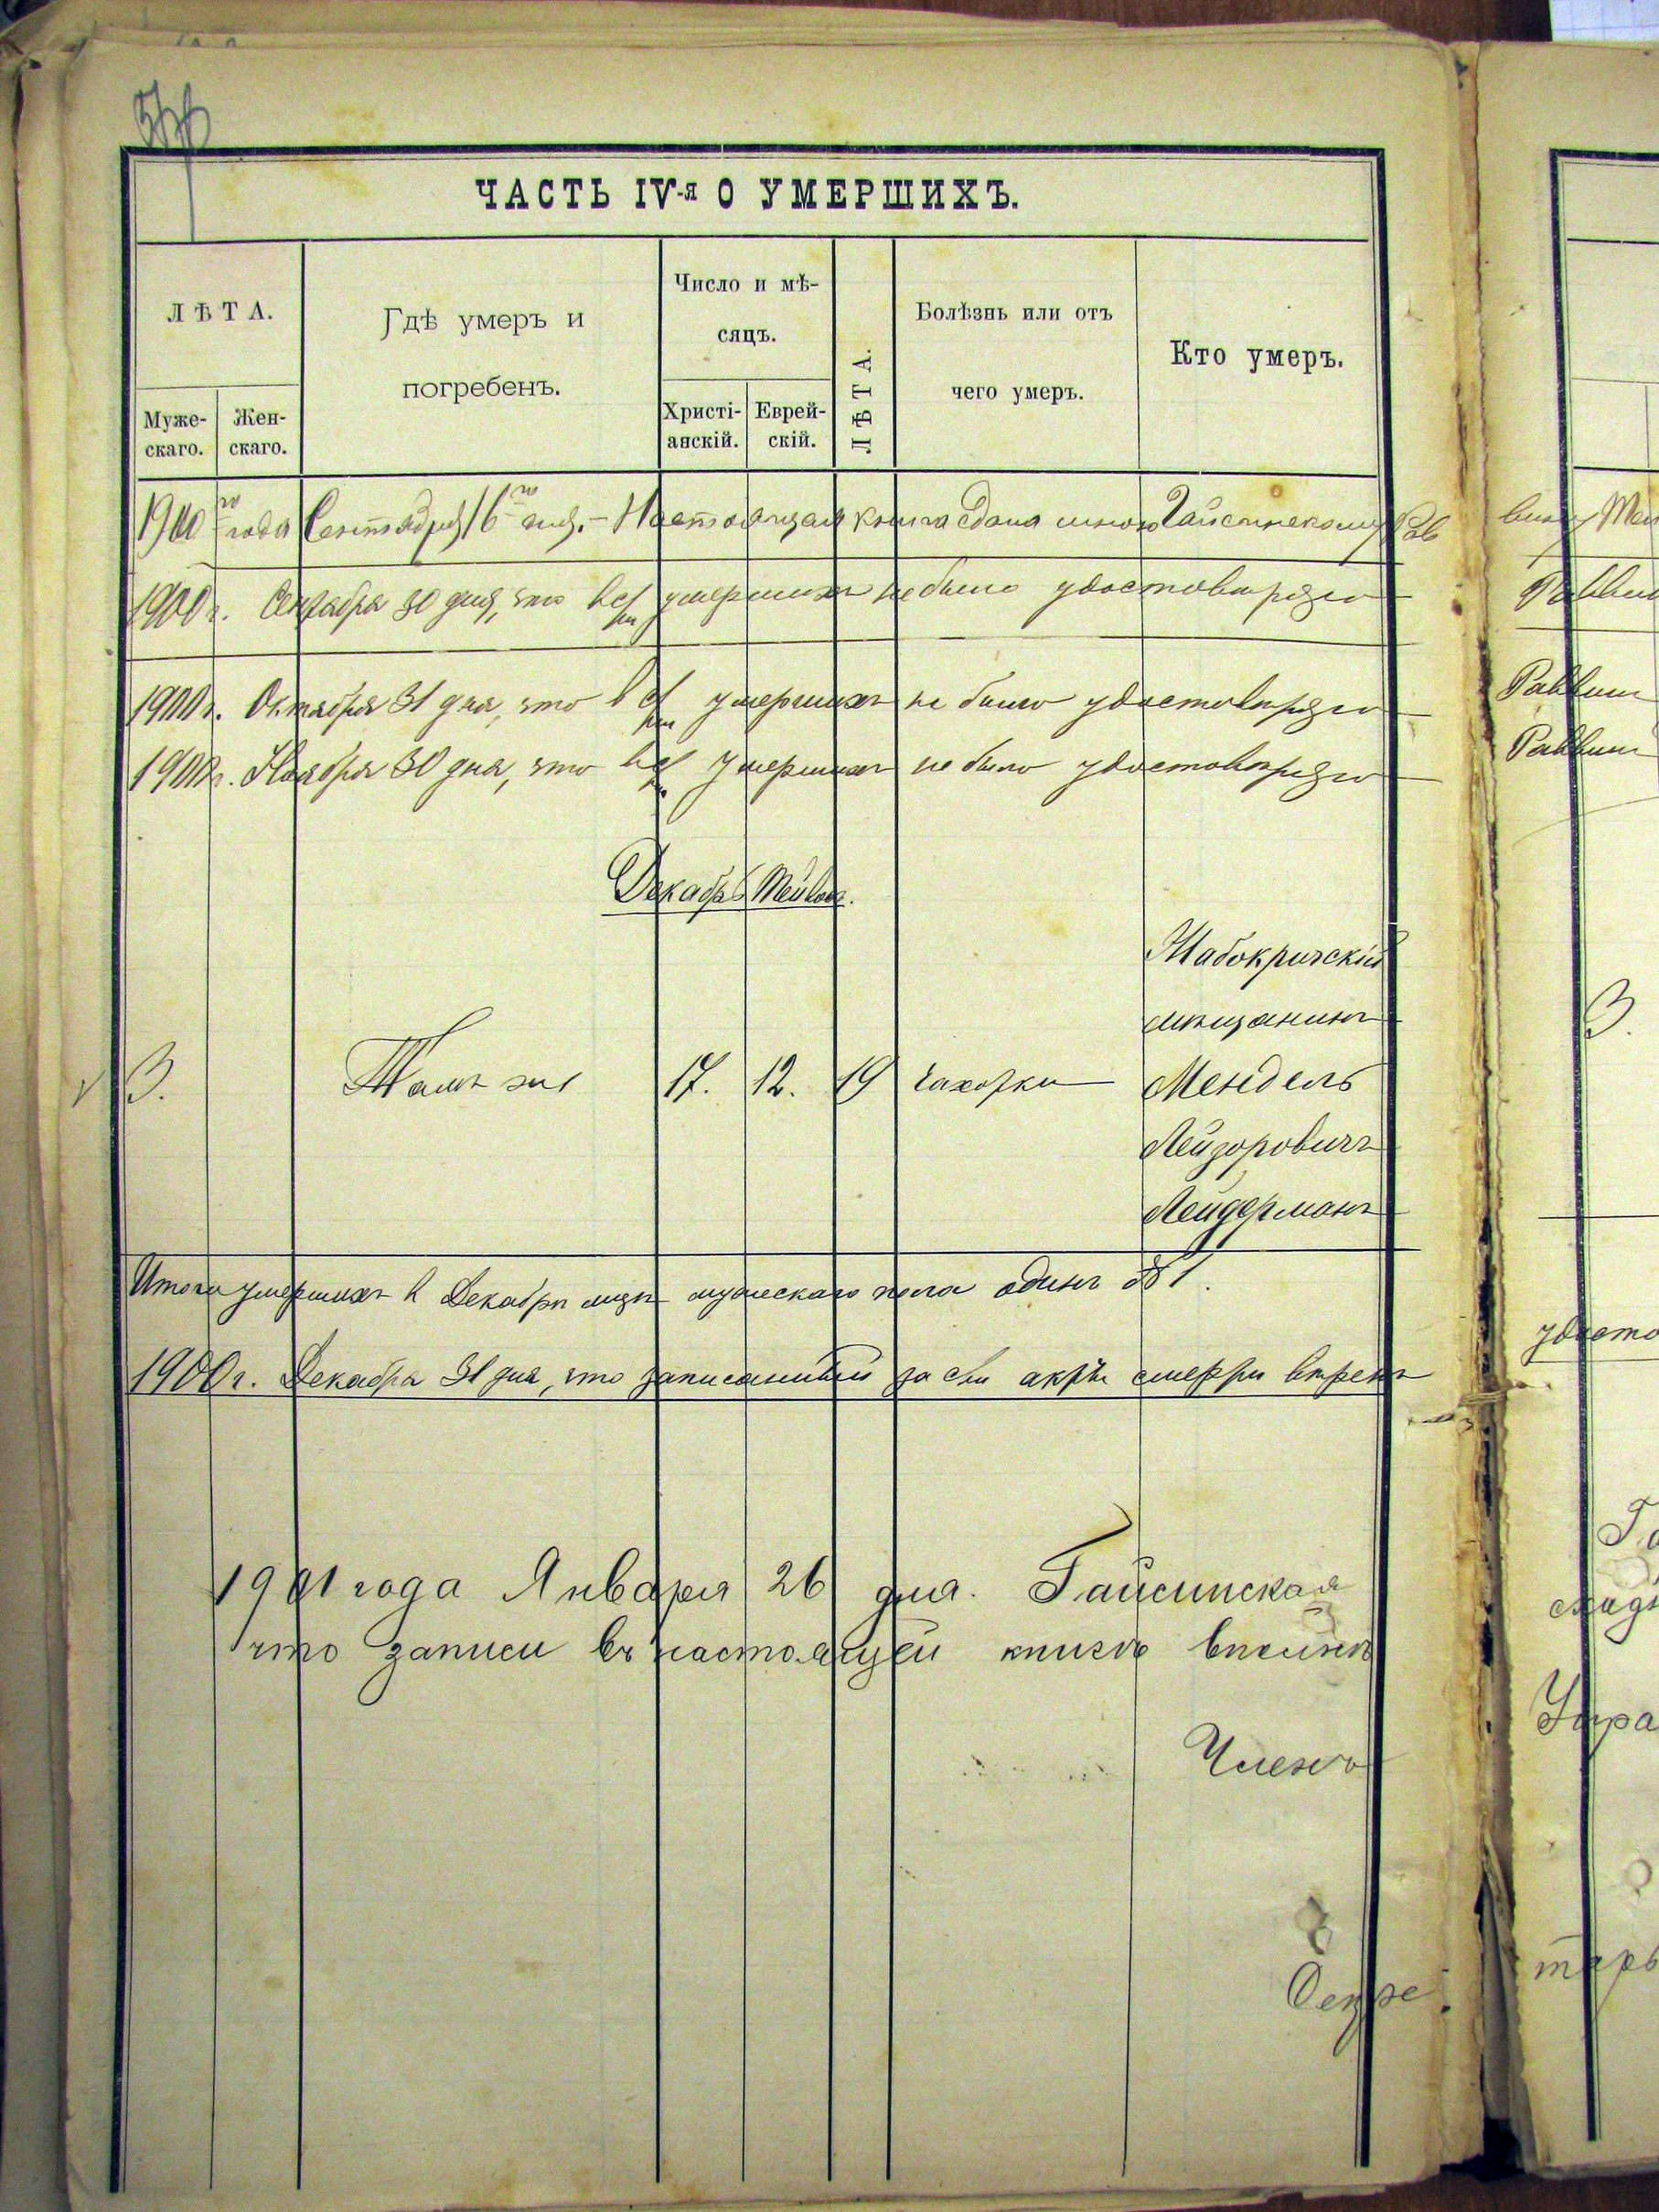 ЧАСТЬ IV-я О УМЕРШИХЪ.
ЛѢТА.
Муже-
скаго.
Жен-
скаго.
Гдѣ умеръ и
погребенъ.
Число и мѣ-
сяцъ.
Христі-
анскій.
Еврей-
скій.
ЛѢТА.
Болѣзнь или отъ
чего умеръ.
Кто умеръ.
1900 го года Сентября 16 го дня. – Настоящая книга сдана мною Гайсинскому Рав
1900 г. Сентября 30 дня, что умершихъ не было удостовѣряю
1900 г. Октября 31 дня, что умершихъ не было удостовѣряю
1900 г. Ноября 30 дня, что умершихъ не было удостовѣряю
Декабрь Тейвес.
3. Тамъ же 17. 12. 19 чахотки
Жабокричскій
мѣщанинъ
Мендель
Лейзоровичъ
Лейдерманъ
Итого умершихъ въ Декабрѣ мужескаго пола одинъ № 1.
1900 г. Декабря 31 дня, что записанный за сей актъ смерти вѣренъ
1901 года Января 26 дня. Гайсинская
что записи въ настоящей книгѣ вполнѣ
Членъ
Секре
Раввин
Раввин
3.
удосто
Упра
тарь